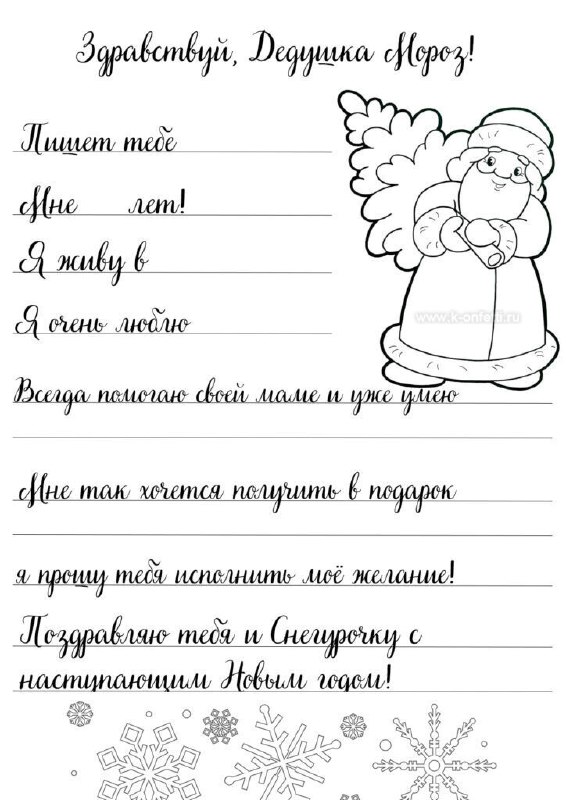 Здравствуй, Дедушка Мороз!
Пишет тебе
Мне лет!
Я живу в
Я очень люблю
www.k-onfera.ru
Всегда помогаю своей маме и уже умею
Мне так хочется получить в подарок
я прошу тебя исполнить моё желание!
Поздравляю тебя и Снегурочку с
наступающим Новым годом!